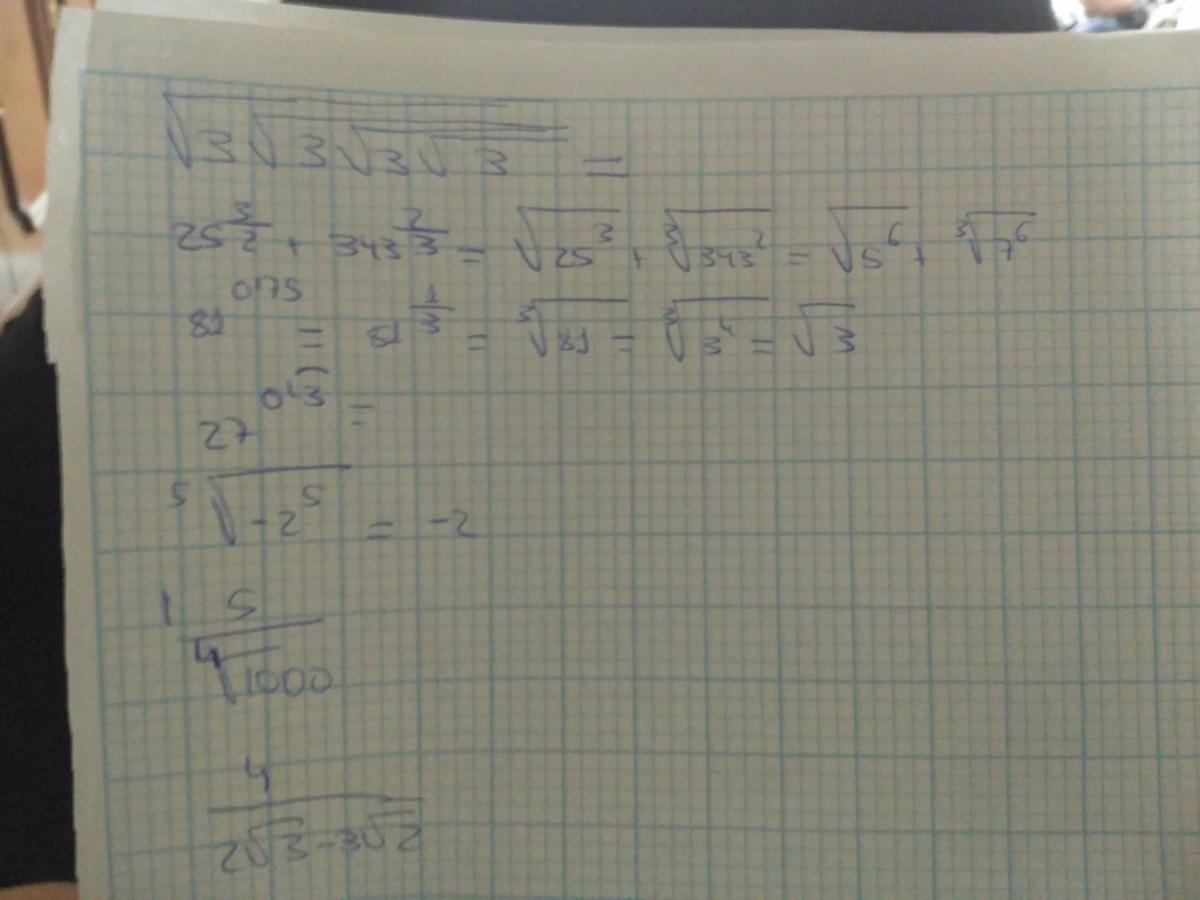 √(3√(3√(3√3))) =
25^(3/2) + 343^(2/3) = √(25^3) + ∛(343^2) = √(5^6) + ∛(7^6)
81^075 = 81^(1/3) = ∛81 = ∛(3^4) = √3
27^(0,(3)) =
⁵√(-2^5) = -2
1 5/⁴√1000
4/(2√3-3√2)